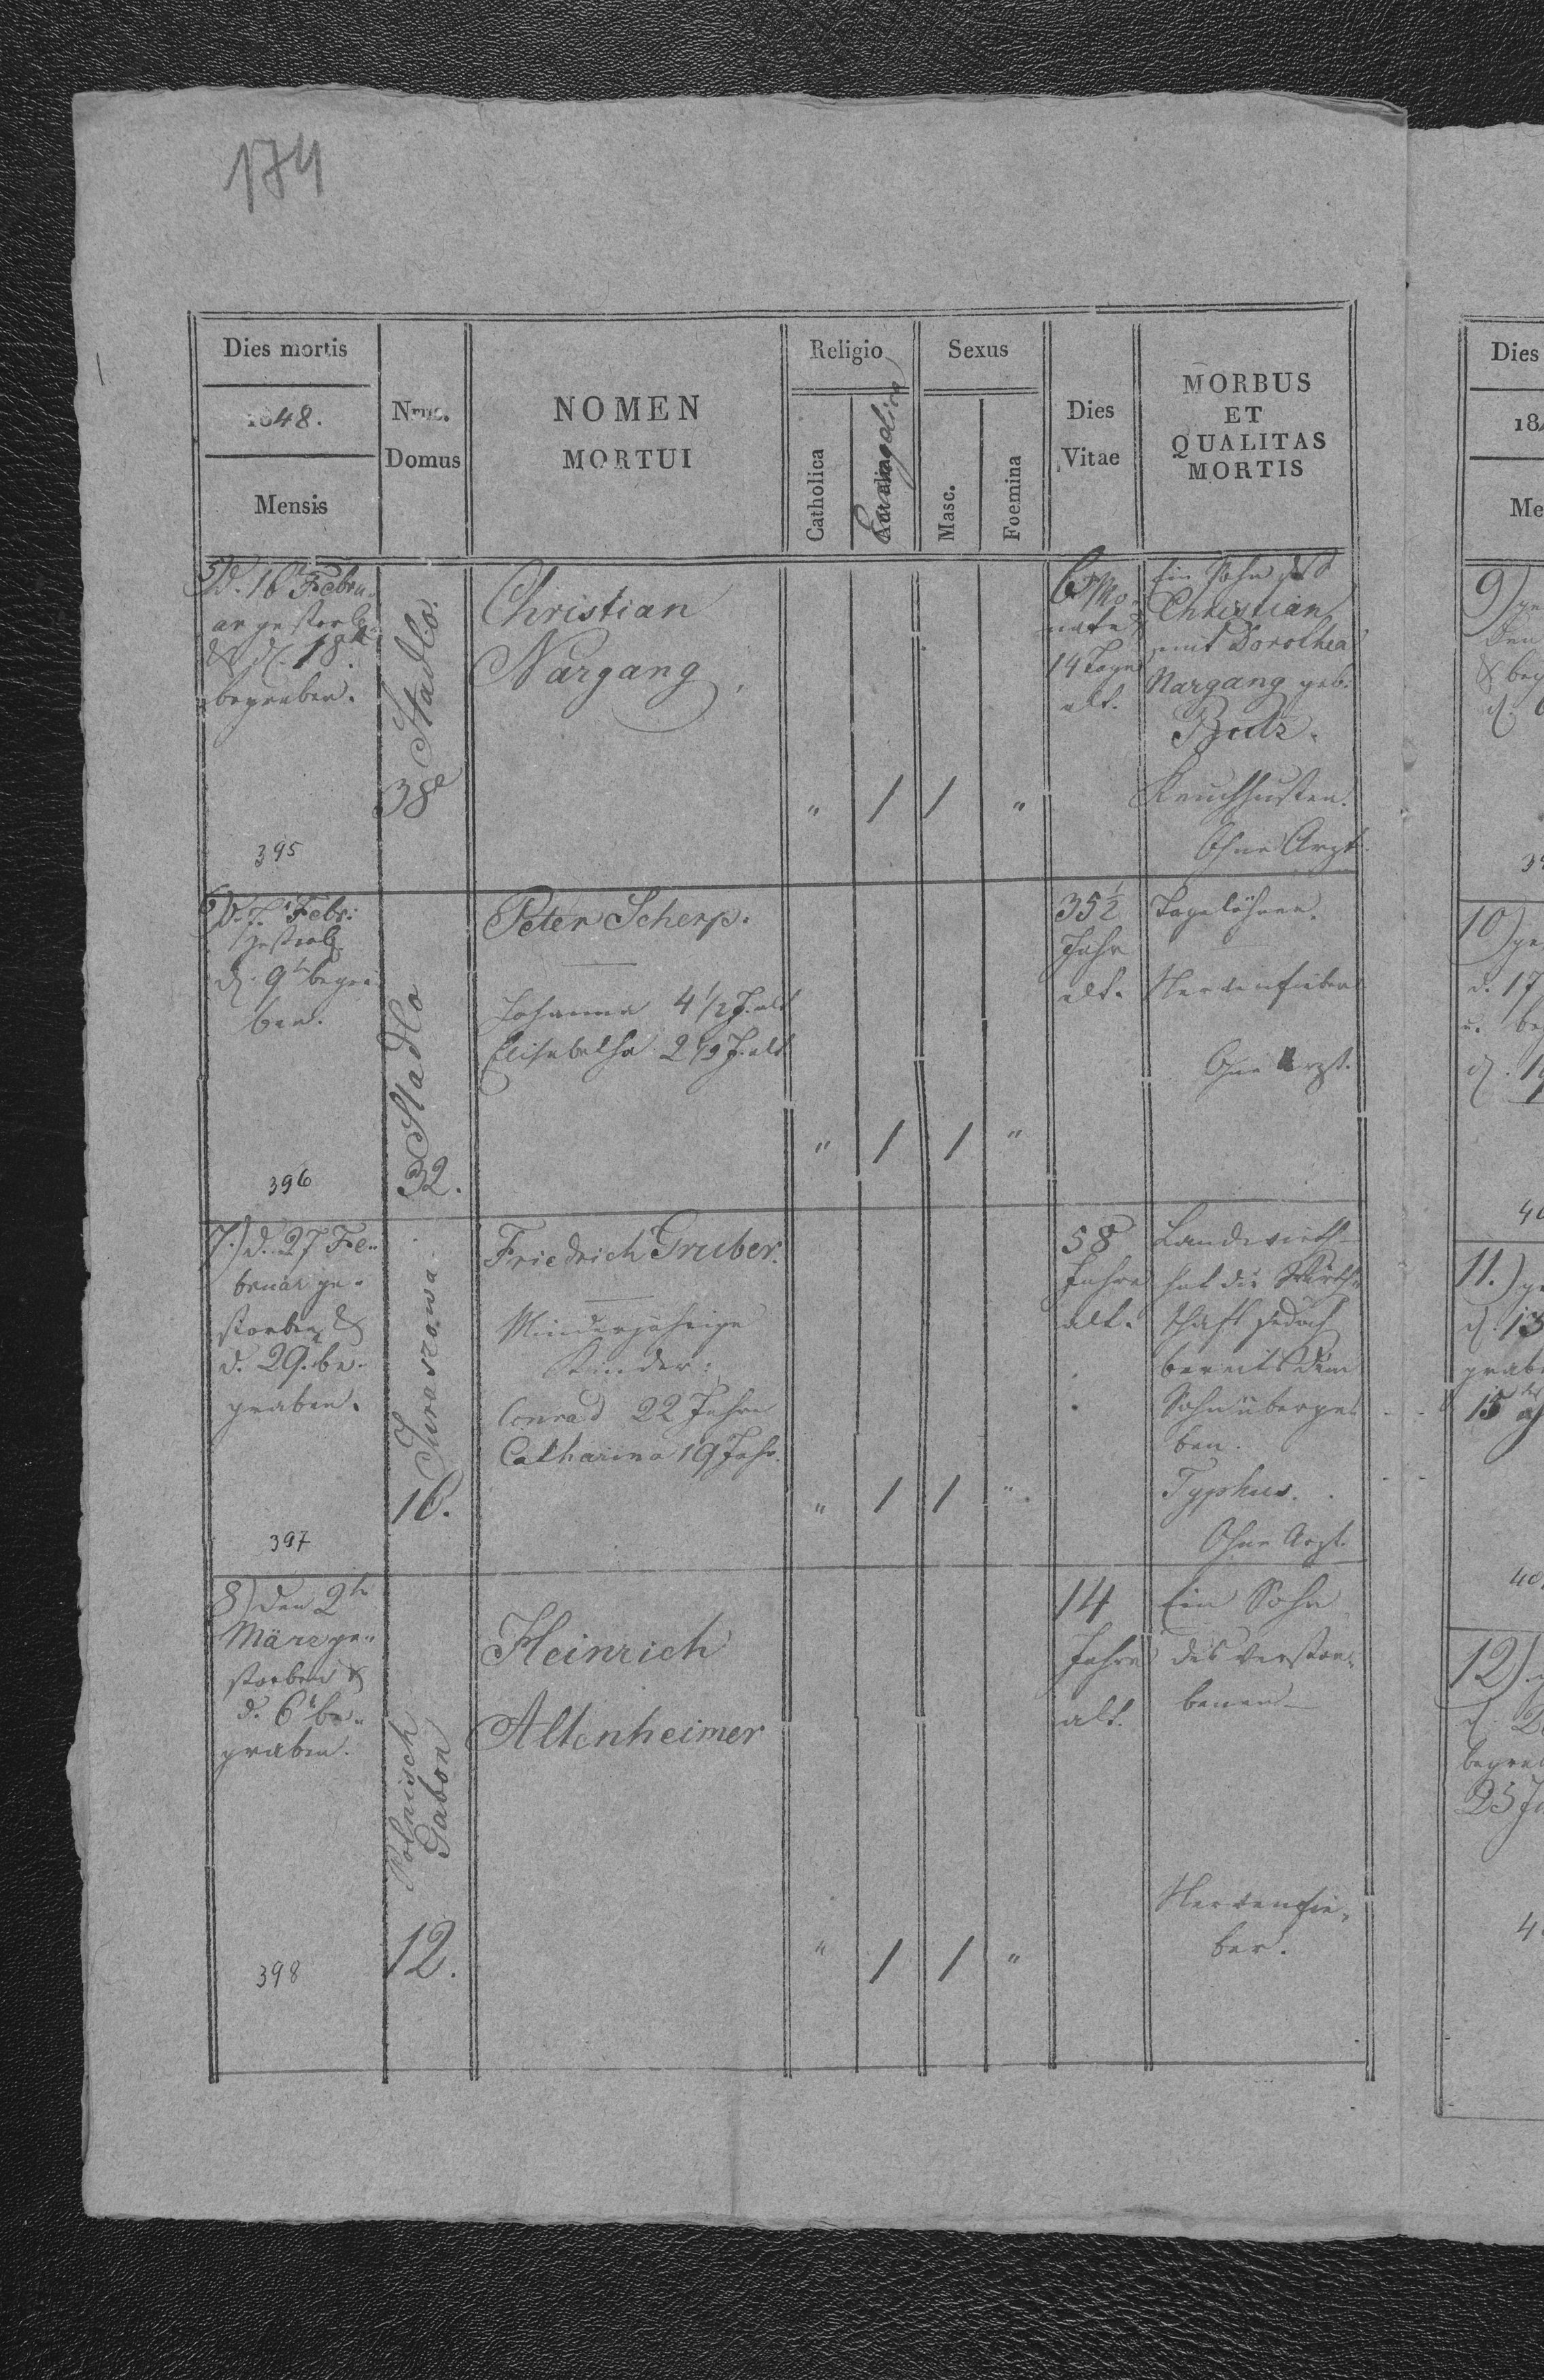 174
Dies mortis
1848.
Mensis
Nrus.
Domus
NOMEN
MORTUI
Religio
Catholica
Evangelica
Sexus
Masc.
Foemina
Dies
Vitae
MORBUS
ET
QUALITAS
MORTIS
5) d. 16 Febru-
ar gestorb.
& d. 18
begraben.
395
Stadlo.
38
Christian
Nargang
"
1
1
"
6 Mo-
nate
14 Tage
alt.
Ein Sohn des
Christian
und Dorothea
Nargang geb.
Butz.
Keuchhusten.
Ohne Arzt.
6) d. 7 Febr:
gestorb.
d. 9t begra-
ben.
396
Stadlo
32.
Peter Scherp.
Johanna 4 1/2 J. alt
Elisabetha 2 1/2 J. alt
"
1
1
"
35 1/2
Jahr
alt.
Tagelöhner.
Nervenfieber
Ohne Arzt.
7.) d. 27 Fe-
bruar ge-
storben &
d. 29. be-
graben.
397
Juraszowa
16.
Friedrich Gruber.
Minderjährige
Kinder:
Conrad 22 Jahre
Catharina 19 Jahr.
"
1
1
"
58
Jahre
alt.
Landwirth
hat die Wirth-
schaft jedoch
bereits dem
Sohn überge-
ben.
Typhus.
Ohne Arzt.
8) den 2tn
März ge-
storben &
d. 6t be-
graben.
398
Polnisch
Gabon
12.
Heinrich
Altenheimer
"
1
1
"
14
Jahre
alt.
Ein Sohn
des verstor-
benen
Nervenfie-
ber.
Dies
18
Me
9)
den
& beg
10)
d. 17
11.)
d. 13
grab
15
12).
begrab
25 Ju